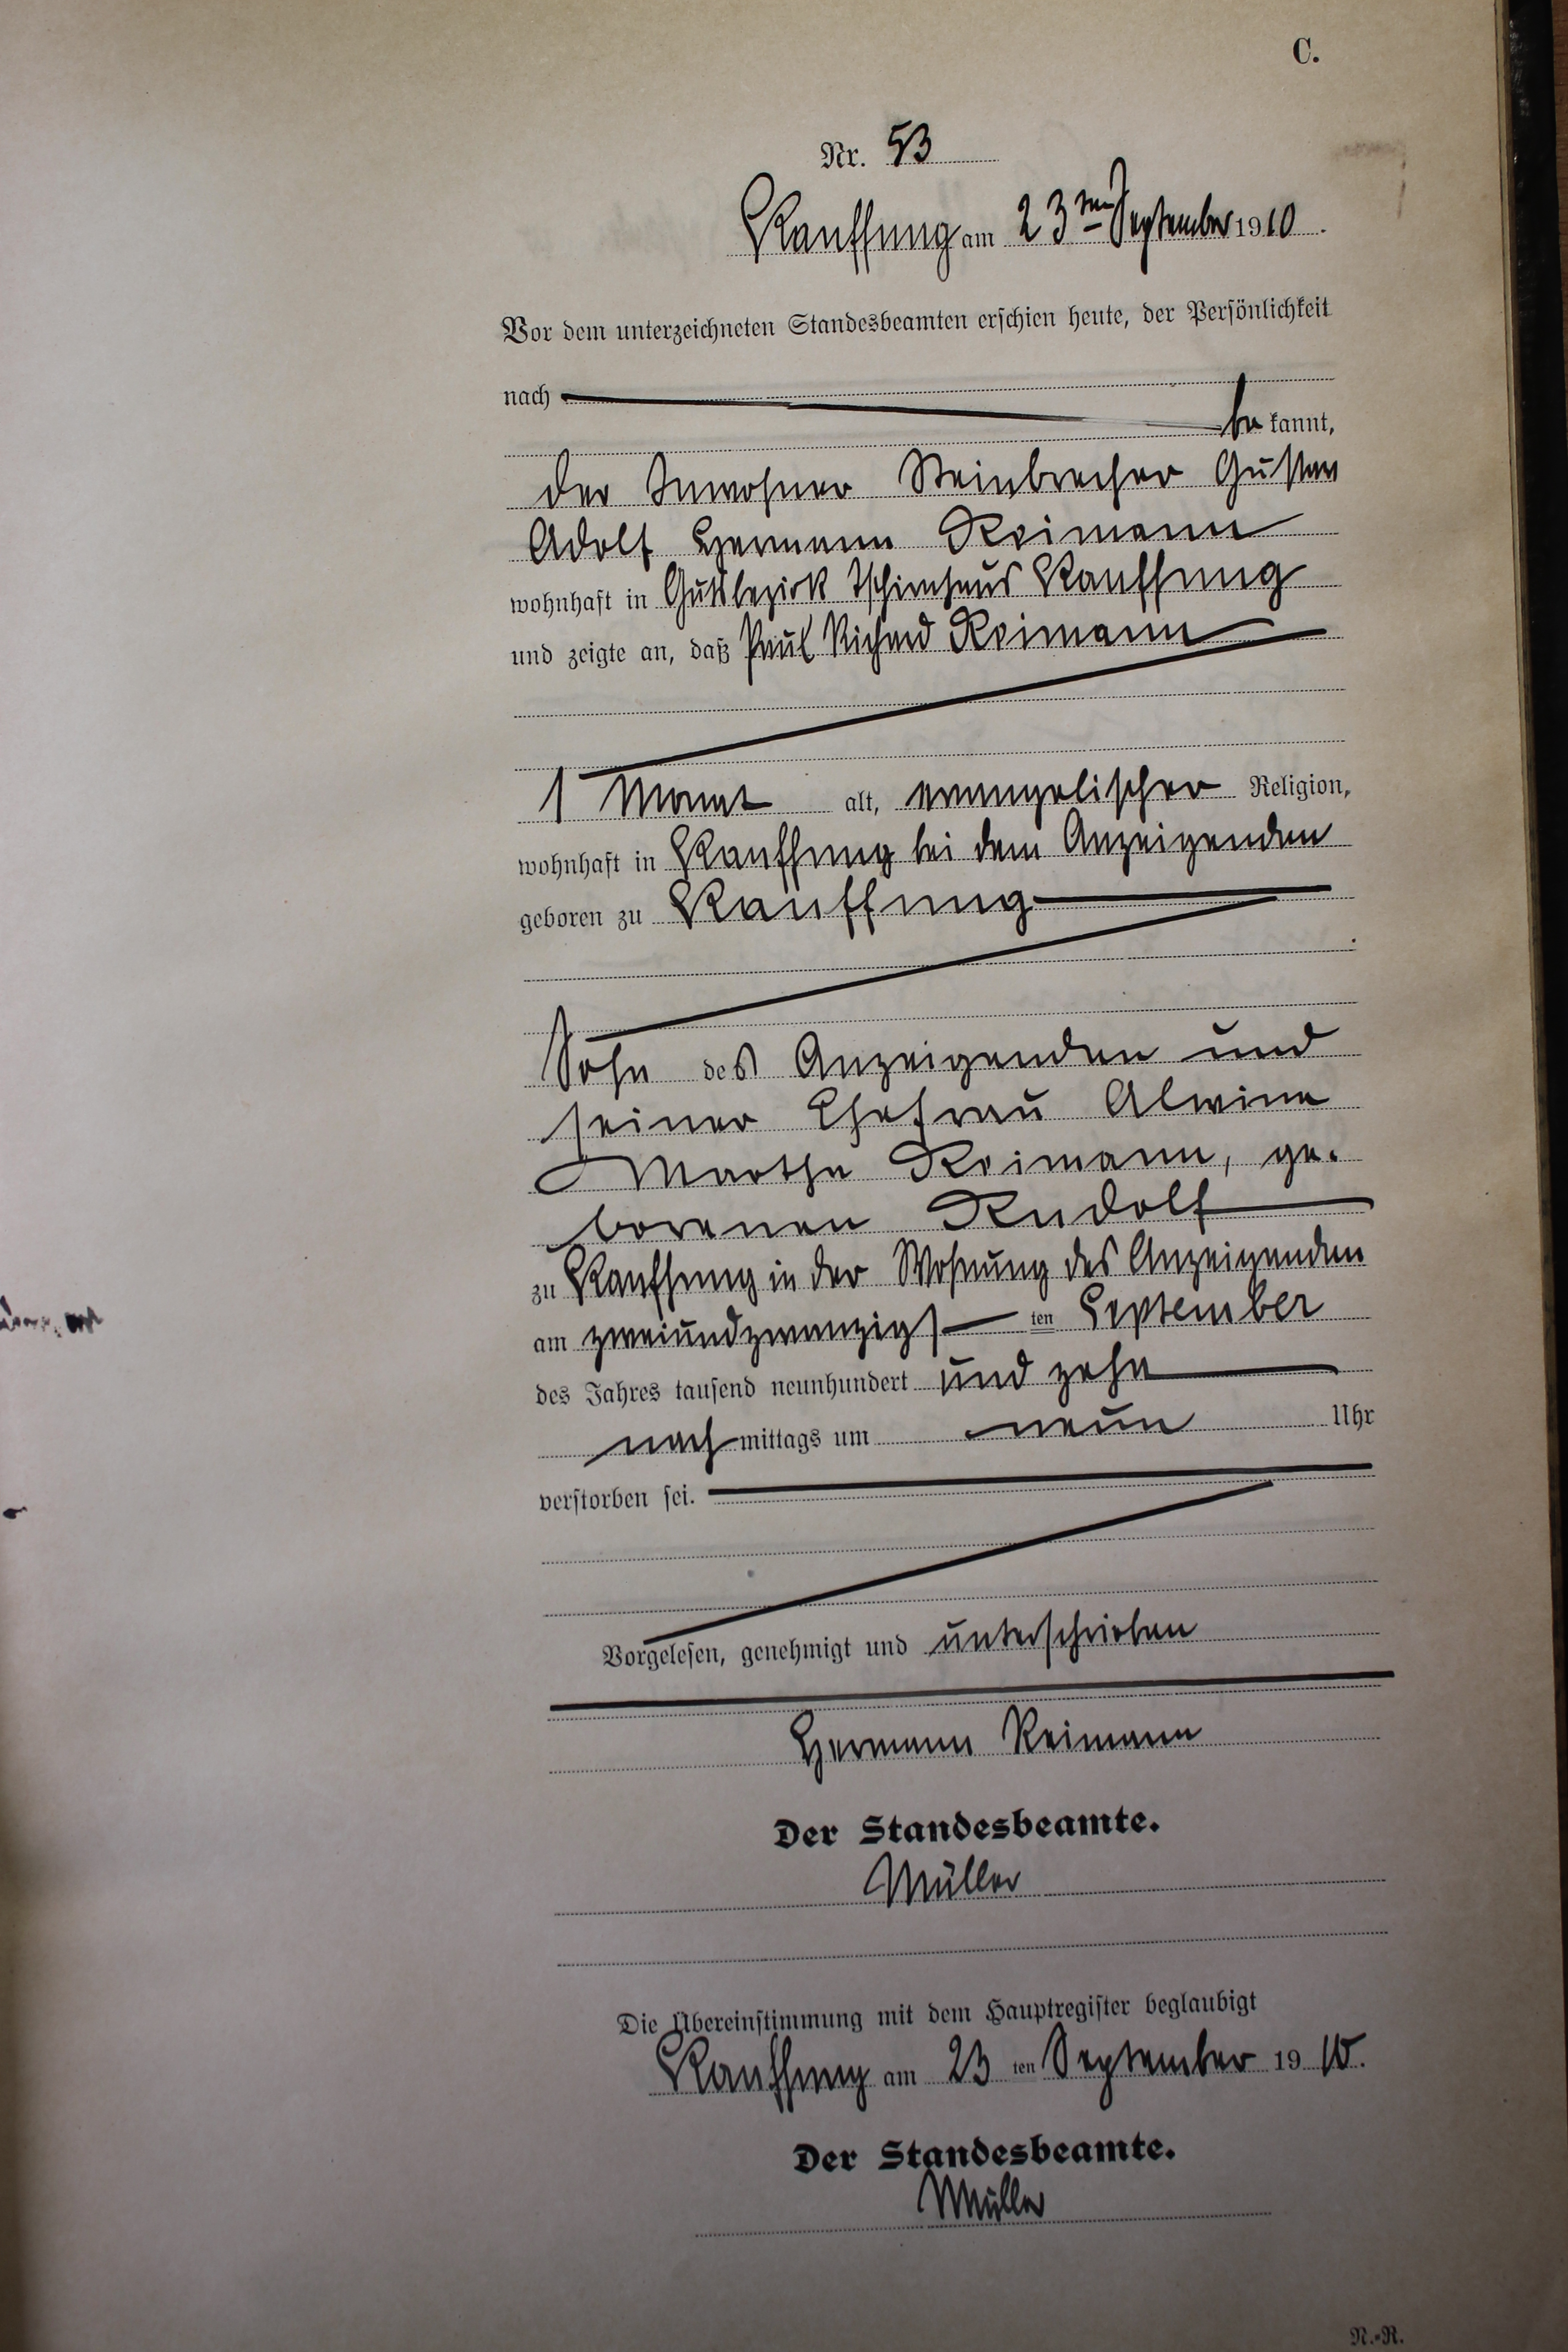 C.
Nr. 53
Kauffung am 23ten September 1910.
Vor dem unterzeichneten Standesbeamten erschien heute, der Persönlichkeit
nach
be kannt,
der Inwohner Steinbrecher Gustav
Adolf Hermann Reimann
wohnhaft in Gutsbezirk Tschirnhaus Kauffung
und zeigte an, daß Paul Richard Reimann
1 Monat alt, evangelischer Religion,
wohnhaft in Kauffung bei dem Anzeigenden
geboren zu Kauffung
Sohn des Anzeigenden und
seiner Ehefrau Alwine
Martha Reimann, ge.
borenen Rudolf
zu Kauffung in der Wohnung des Anzeigenden
am zweiundzwanzigs ten September
des Jahres tausend neunhundert und zehn
nach mittags um neun Uhr
verstorben sei.
Vorgelesen, genehmigt und unterschrieben
Hermann Reimann
Der Standesbeamte.
Müller
Die Übereinstimmung mit dem Hauptregister beglaubigt
Kauffung am 23 ten September 19 10.
Der Standesbeamte.
Müller
N.-R.